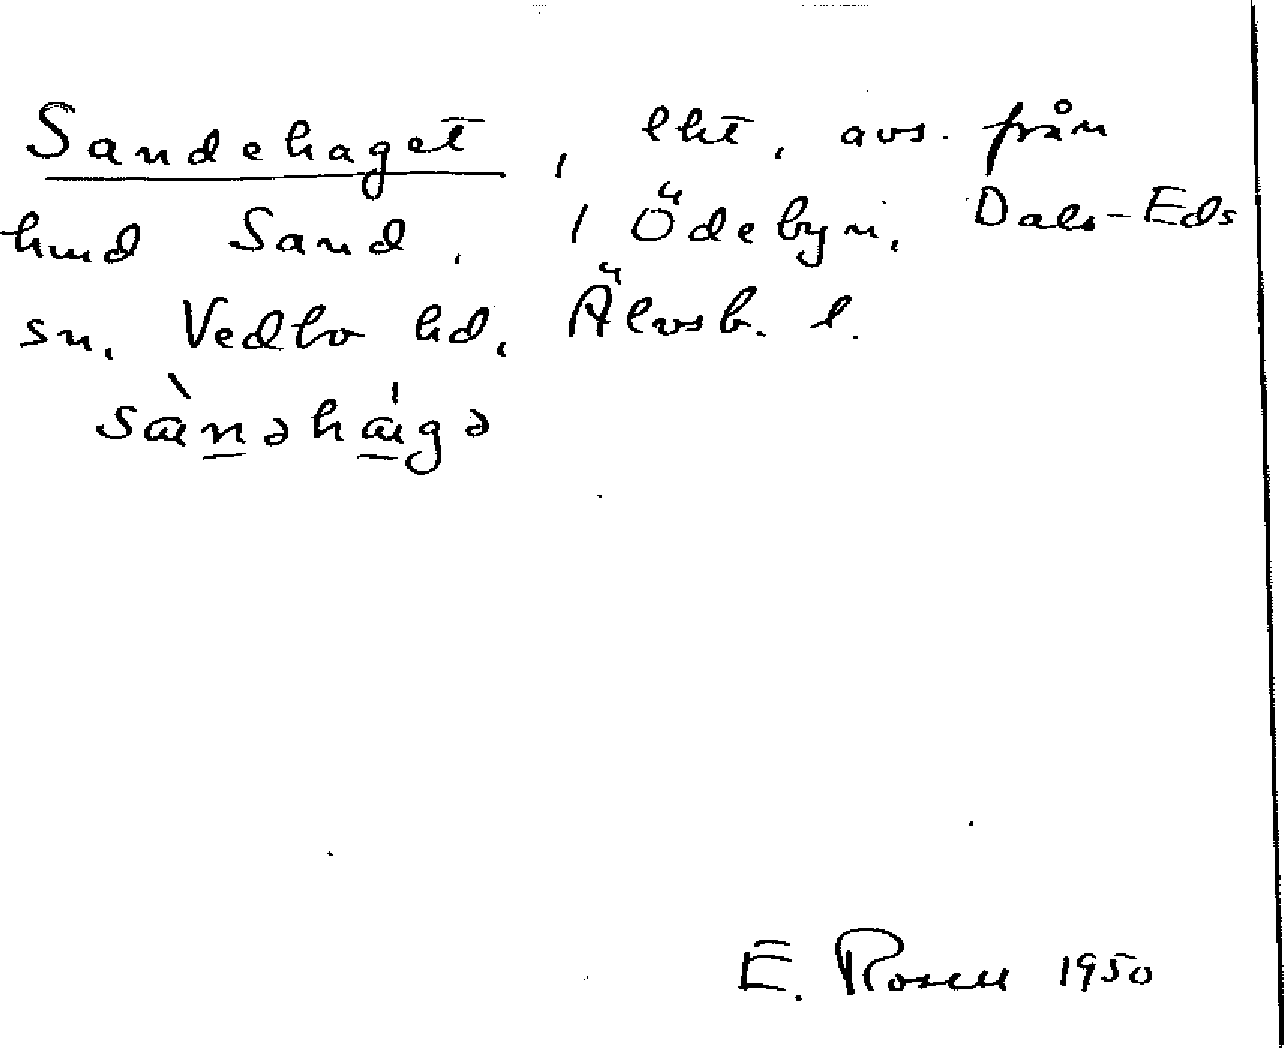 Sandehaget, lht, avs. från
hmd Sand, 1 Ödebyn, Dals-Eds
sn, Vedbo hd, Älvsb. l.
sæ̀nəhǽgə
E. Rosell 1950